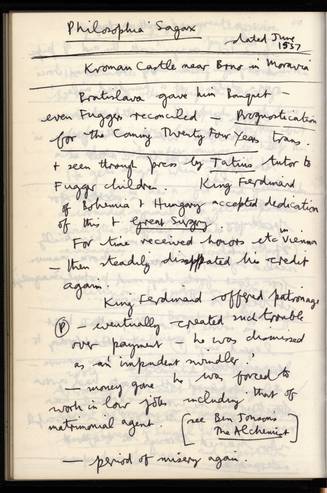 Philosophia Sagax
dated June
1537
Kroman Castle near Brno in Moravia
Bratislava gave him Banquet —
even Fuggers reconciled — Prognostication
for the Coming Twenty Four Years trans.
+ seen through press by Tatius tutor to
Fugger children. King Ferdinand
of Bohemia + Hungary accepted dedication
of this + Great Surgery.
For time received honors etc in Vienna
— then steadily dissipated his credit
again.
King Ferdinand offered patronage
(P) — eventually created such trouble
over payment — he was dismissed
as 'an impudent swindler.'
— money gone he was forced to
work in low jobs including that of
matrimonial agent. [see Ben Jonsons
The Alchemist]
— period of misery again.